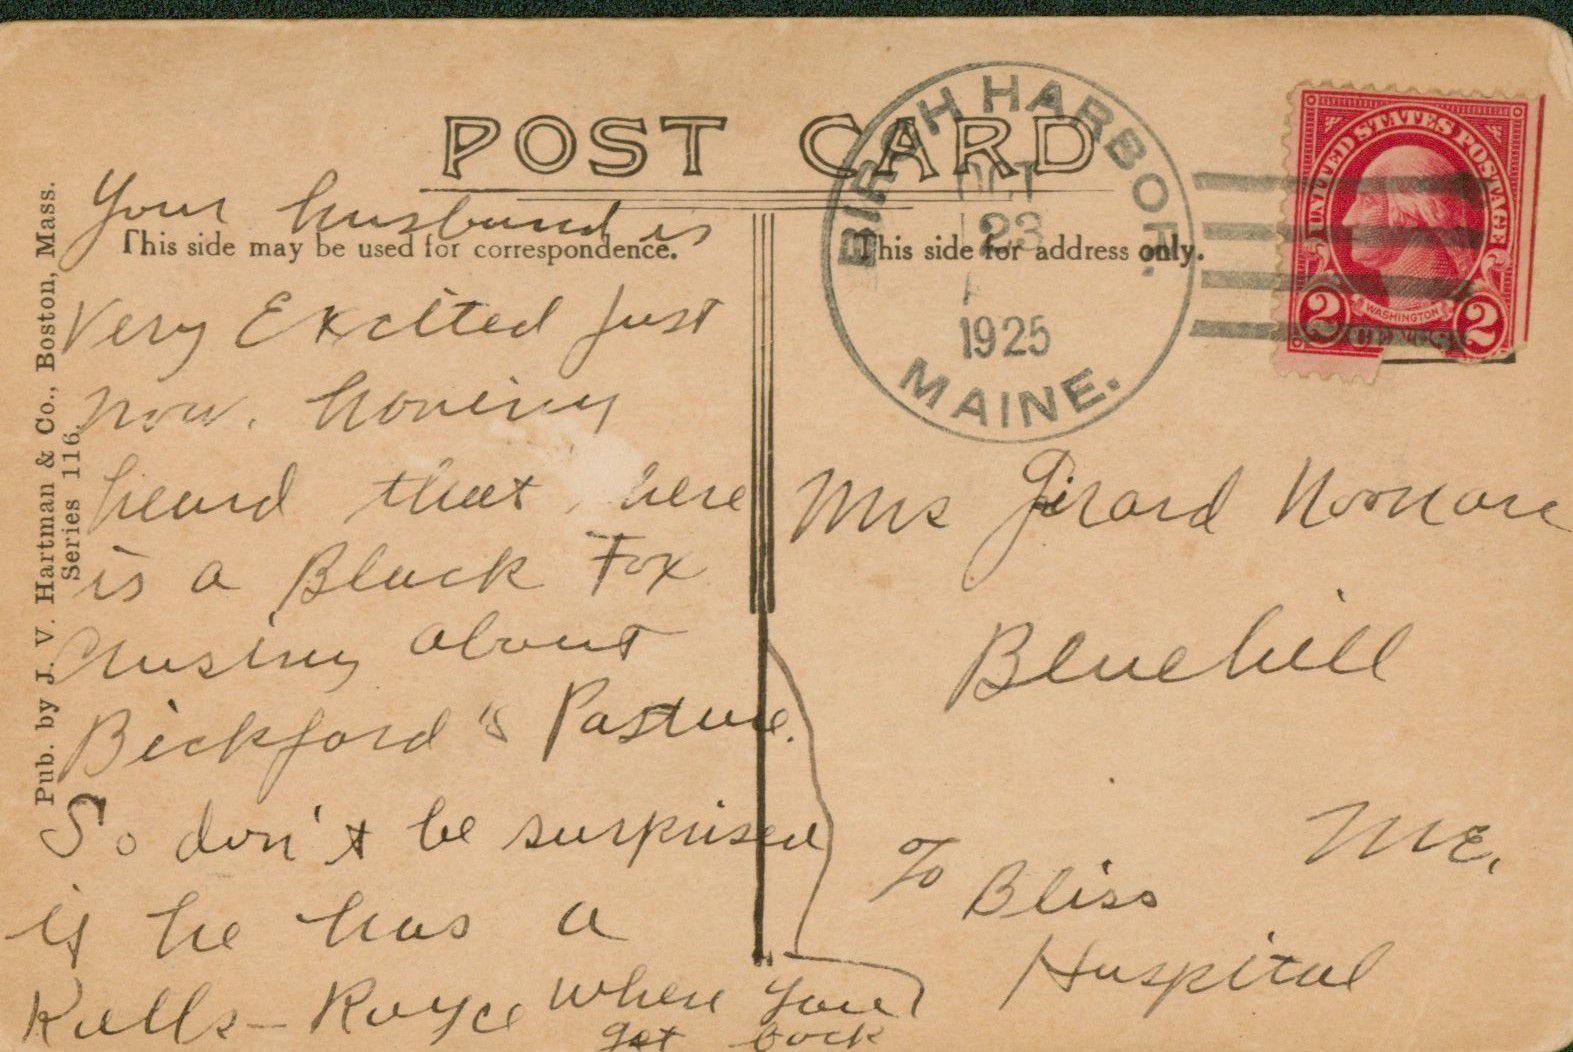 POST CARD
This side may be used for correspondence.
This side for address only.
Pub. by J. V. Hartman & Co., Boston, Mass.
Series 116.
BIRCH HARBOR.
OCT
23
A
1925
MAINE.
UNITED STATES POSTAGE
WASHINGTON
2 CENTS 2
Your husband is
Very Excited Just
now. having
heard that there
is a Black Fox
Crusing about
Bickford's Pasture.
So don't be surprised
if he has a
Rolls-Royce when you
get back
Mrs Girard
Bluehill
Me.
To Bliss
Hospital